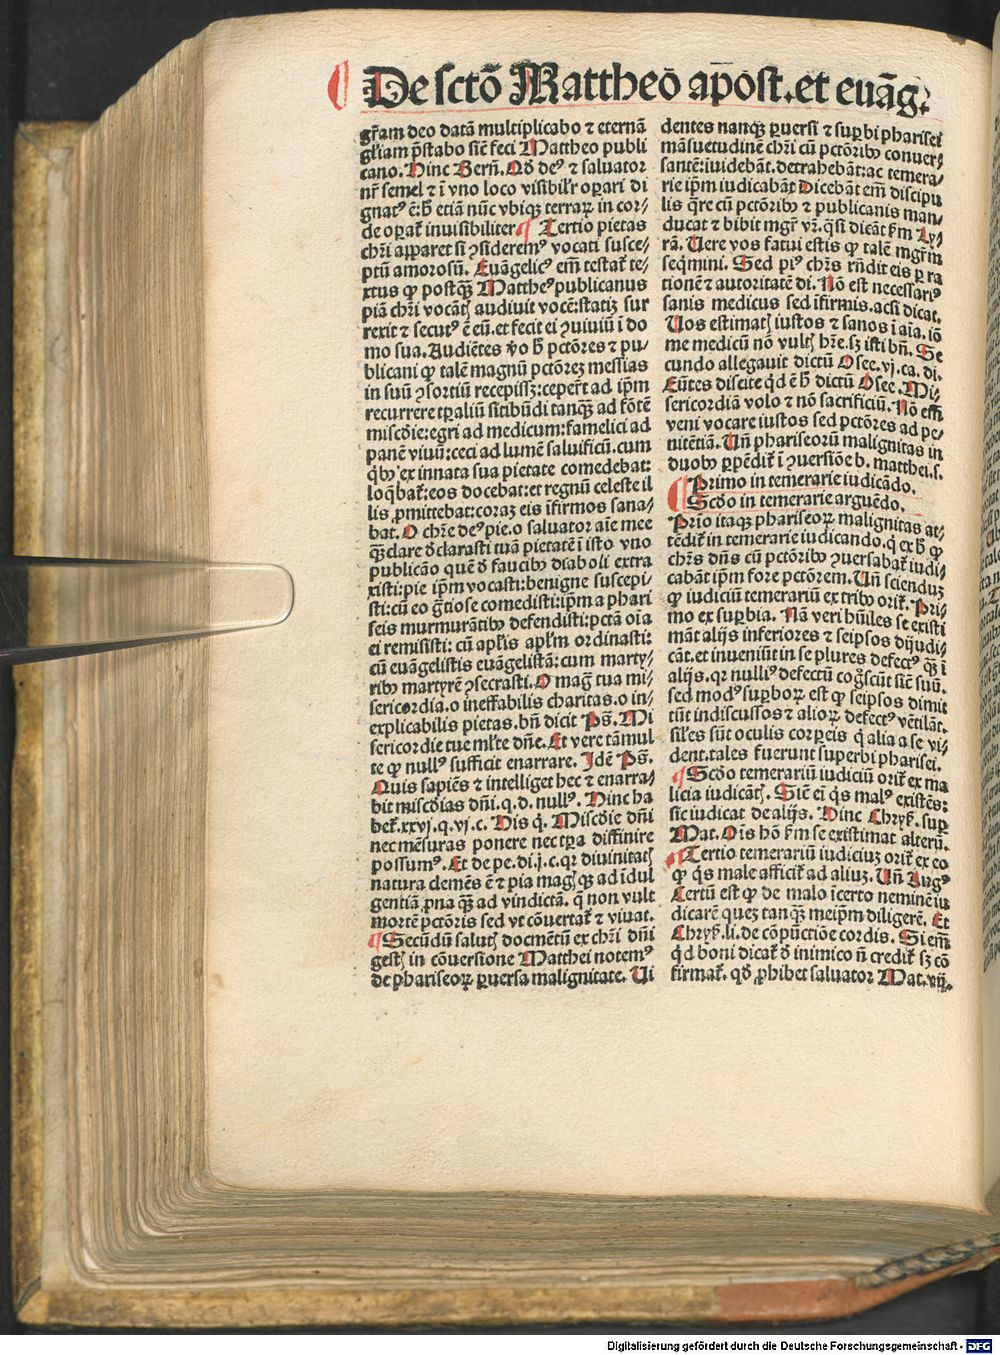 De sctō Mattheo apost. et euāg.
gr̄am deo datā multiplicabo ⁊ eternā
gl̄iam p̄stabo sic̄ feci Mattheo publi
cano. Hinc Bern̄. Qd̄ deꝰ ⁊ saluator
nr̄ semel ⁊ ī vno loco visibilr̄ oꝑari di
gnatꝰ ē: h̄ etiā nūc vbiqꝫ terraꝝ in cor⸗
de oꝑat̄ inuisibiliter ¶ Tertio pietas
chr̄i apparet si ꝯsideremꝰ vocati susce⸗
ptū amorosū. Euāgelicꝰ em̄ testat̄ te⸗
xtus ꝙ postqꝫ̄ Mattheꝰ publicanus
piā chr̄i vocātꝭ audiuit vocē: statiꝫ sur
rexit ⁊ secutꝰ ē eū. et fecit ei ꝯuiuiū ī do
mo sua. Audiētes ꝟo h̄ pctōres ⁊ pu⸗
blicani ꝙ talē magnū pctōreꝫ messias
in suū ꝯsortiū recepissꝫ: ceper̄t ad ip̄m
recurrere tꝑaliū sitibūdi tanqꝫ̄ ad fōtē
miscd̄ie: egri ad medicum: famelici ad
panē viuū: ceci ad lumē saluificū. cum
qͥbꝰ ex innata sua pietate comedebat:
loq̄bat̄: eos docebat: et regnū celeste il
lis ꝓmittebat: coraꝫ eis īfirmos sana⸗
bat. O chr̄e deꝰ pie. o saluator aīe mee
qꝫ̄ clare d̄clarasti tuā pietatē ī isto vno
publicāo quē d̄ faucibꝰ diaboli extra
xisti: pie ip̄m vocasti: benigne suscepi⸗
sti: cū eo gr̄tiose comedisti: ip̄m a phari
seis murmurātibꝰ defendisti: pctā oīa
ei remisisti: cū apl̄is apl̄m ordinasti:
cū euāgelistis euāgelistā: cum marty⸗
ribꝰ martyrē ꝯsecrasti. O maḡ tua mi⸗
sericordia. o ineffabilis charitas. o in⸗
explicabilis pietas. bn̄ dicit Ps̄. Mi
sericordie tue ml̄te dn̄e. Et vere tāmul
te ꝙ nullꝰ sufficit enarrare. Idē Ps̄.
Quis sapiēs ⁊ intelliget hec ⁊ enarra⸗
bit miscd̄ias dn̄i. q. d. nullꝰ. Hinc ha
bet̄. xxvj. q. vj. c. His q̄. Miscd̄ie dn̄i
nec mēsuras ponere nec tꝑa diffinire
possumꝰ. Et de pe. di. j. c. qꝛ diuinitatꝭ
natura clemēs ē ⁊ pia magꝭ qꝫ ad īdul
gentiā ꝓna qꝫ̄ ad vindictā. q̄ non vult
mortē pctōris sed vt cōuertat̄ ⁊ viuat.
¶ Secūdū salutꝭ docmētū ex chr̄i dn̄i
gestꝭ in cōuersione Matthei notemꝰ
de phariseoꝝ ꝑuersa malignitate. Ui
dentes nanqꝫ ꝑuersi ⁊ suꝑbi pharisei
māsuetudinē chr̄i cū pctōribꝰ conuer⸗
santē: iuidebāt. detrahebāt: ac temera⸗
rie ip̄m iudicabāt Dicebāt em̄ discipu
lis qͣre cū pctōribꝰ ⁊ publicanis man⸗
ducat ⁊ bibit mgr̄ vr̄. qͣsi dicāt s̄m Ly⸗
rā. Uere vos fatui estis ꝙ talē mgr̄m
seqͥmini. Sed piꝰ chr̄s rn̄dit eis ꝑ ra
tionē ⁊ autoritatē di. Nō est necessariꝰ
sanis medicus sed īfirmis. acsi dicat.
Uos estimatꝭ iustos ⁊ sanos ī aīa. iō
me medicū nō vultꝭ hr̄e. sꝫ isti bn̄. Se
cundo allegauit dictū Osee. vj. ca. di.
Eūtes discite qͥd ē h̄ dictū Osee. Mi⸗
sericordiā volo ⁊ nō sacrificiū. Nō em̄
veni vocare iustos sed pctōres ad pe⸗
nitētiā. Un̄ phariseorū malignitas in
duobꝰ ꝑpēdit̄ ī ꝯuersiōe b. matthei. s.
¶ Primo in temerarie iudicādo.
Scd̄o in temerarie arguēdo.
Prīo itaqꝫ phariseoꝝ malignitas at⸗
tēdit̄ in temerarie iudicando. q̄ ex h̄ ꝙ
chr̄s dn̄s cū pctōribꝰ ꝯuersabat̄ iudi⸗
cabāt ip̄m fore pctōrem. Un̄ sciendūꝫ
ꝙ iudiciū temerariū ex tribꝰ orit̄. Pri⸗
mo ex suꝑbia. Nā veri hūiles se existi
māt alijs inferiores ⁊ seipsos dijudi⸗
cāt. et inueniūt in se plures defectꝰ qꝫ̄ ī
alijs. qꝛ nulliꝰ defectū cog̊scūt sic̄ suū.
sed modꝰ suꝑboꝝ est ꝙ seipsos dimit
tūt indiscussos ⁊ alioꝝ defectꝰ vētilāt.
sil̄es sūt oculis corꝑeis qͥ alia a se vi⸗
dent. tales fuerunt superbi pharisei.
¶ Scd̄o temerariū iudiciū orit̄ ex ma
licia iudicātꝭ. Sic̄ eī qͥs malꝰ existēs:
sic iudicat de alijs. Hinc Chrys̄. suꝑ
Mat. Oīs hō s̄m se existimat alterū.
¶ Tertio temerariū iudiciuꝫ orit̄ ex eo
ꝙ qͥs male afficit̄ ad aliuꝫ. Un̄ Augꝰ
Certū est ꝙ de malo īcerto neminē iu
dicarē queꝫ tanqꝫ̄ meip̄m diligerē. Et
Chrys̄. li. de cōpūctiōe cordis. Si em̄
qͥd boni dicat̄ d̄ inimico n̄ credit̄ sꝫ cō
firmat̄. qd̄ ꝓhibet saluator Mat. vij.
Digitalisierung gefördert durch die Deutsche Forschungsgemeinschaft - DFG